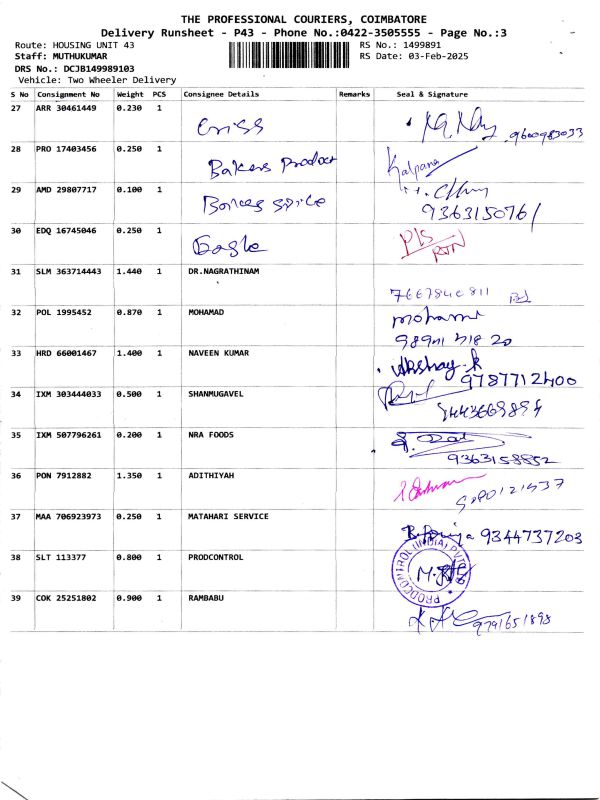 THE PROFESSIONAL COURIERS, COIMBATORE
Delivery Runsheet - P43 - Phone No.:0422-3505555 - Page No.:3
Route: HOUSING UNIT 43 RS No.: 1499891
Staff: MUTHUKUMAR RS Date: 03-Feb-2025
DRS No.: DCJB149989103
Vehicle: Two Wheeler Delivery
S No Consignment No Weight PCS Consignee Details Remarks Seal & Signature
27 ARR 30461449 0.230 1 Criss 9600983033
28 PRO 17403456 0.250 1 Bakers Product Kalpana
29 AMD 29807717 0.100 1 9363150761
30 EDQ 16745046 0.250 1 Eagle P/S RTN
31 SLM 363714443 1.440 1 DR.NAGRATHINAM
32 POL 1995452 0.870 1 MOHAMAD
33 HRD 66001467 1.400 1 NAVEEN KUMAR Akshay.k 9787712400
34 IXM 303444033 0.500 1 SHANMUGAVEL
35 IXM 507796261 0.200 1 NRA FOODS 9363158852
36 PON 7912882 1.350 1 ADITHIYAH
37 MAA 706923973 0.250 1 MATAHARI SERVICE 9344737203
38 SLT 113377 0.800 1 PRODCONTROL PRODCONTROL (INDIA) PVT
39 COK 25251802 0.900 1 RAMBABU 9791651898